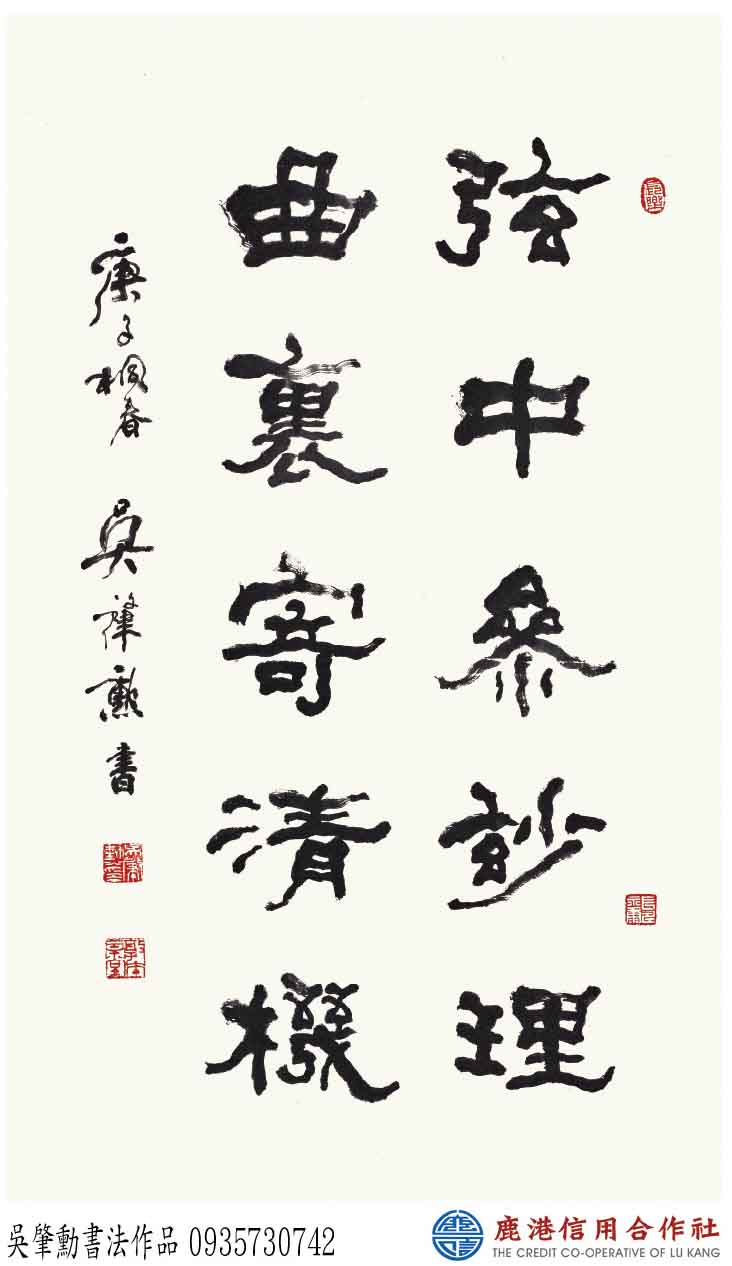 弦中參玅理
曲裏寄清機
庚子桐春 吳肇勳書
吳肇勳書法作品 0935730742
鹿港信用合作社
THE CREDIT CO-OPERATIVE OF LU KANG